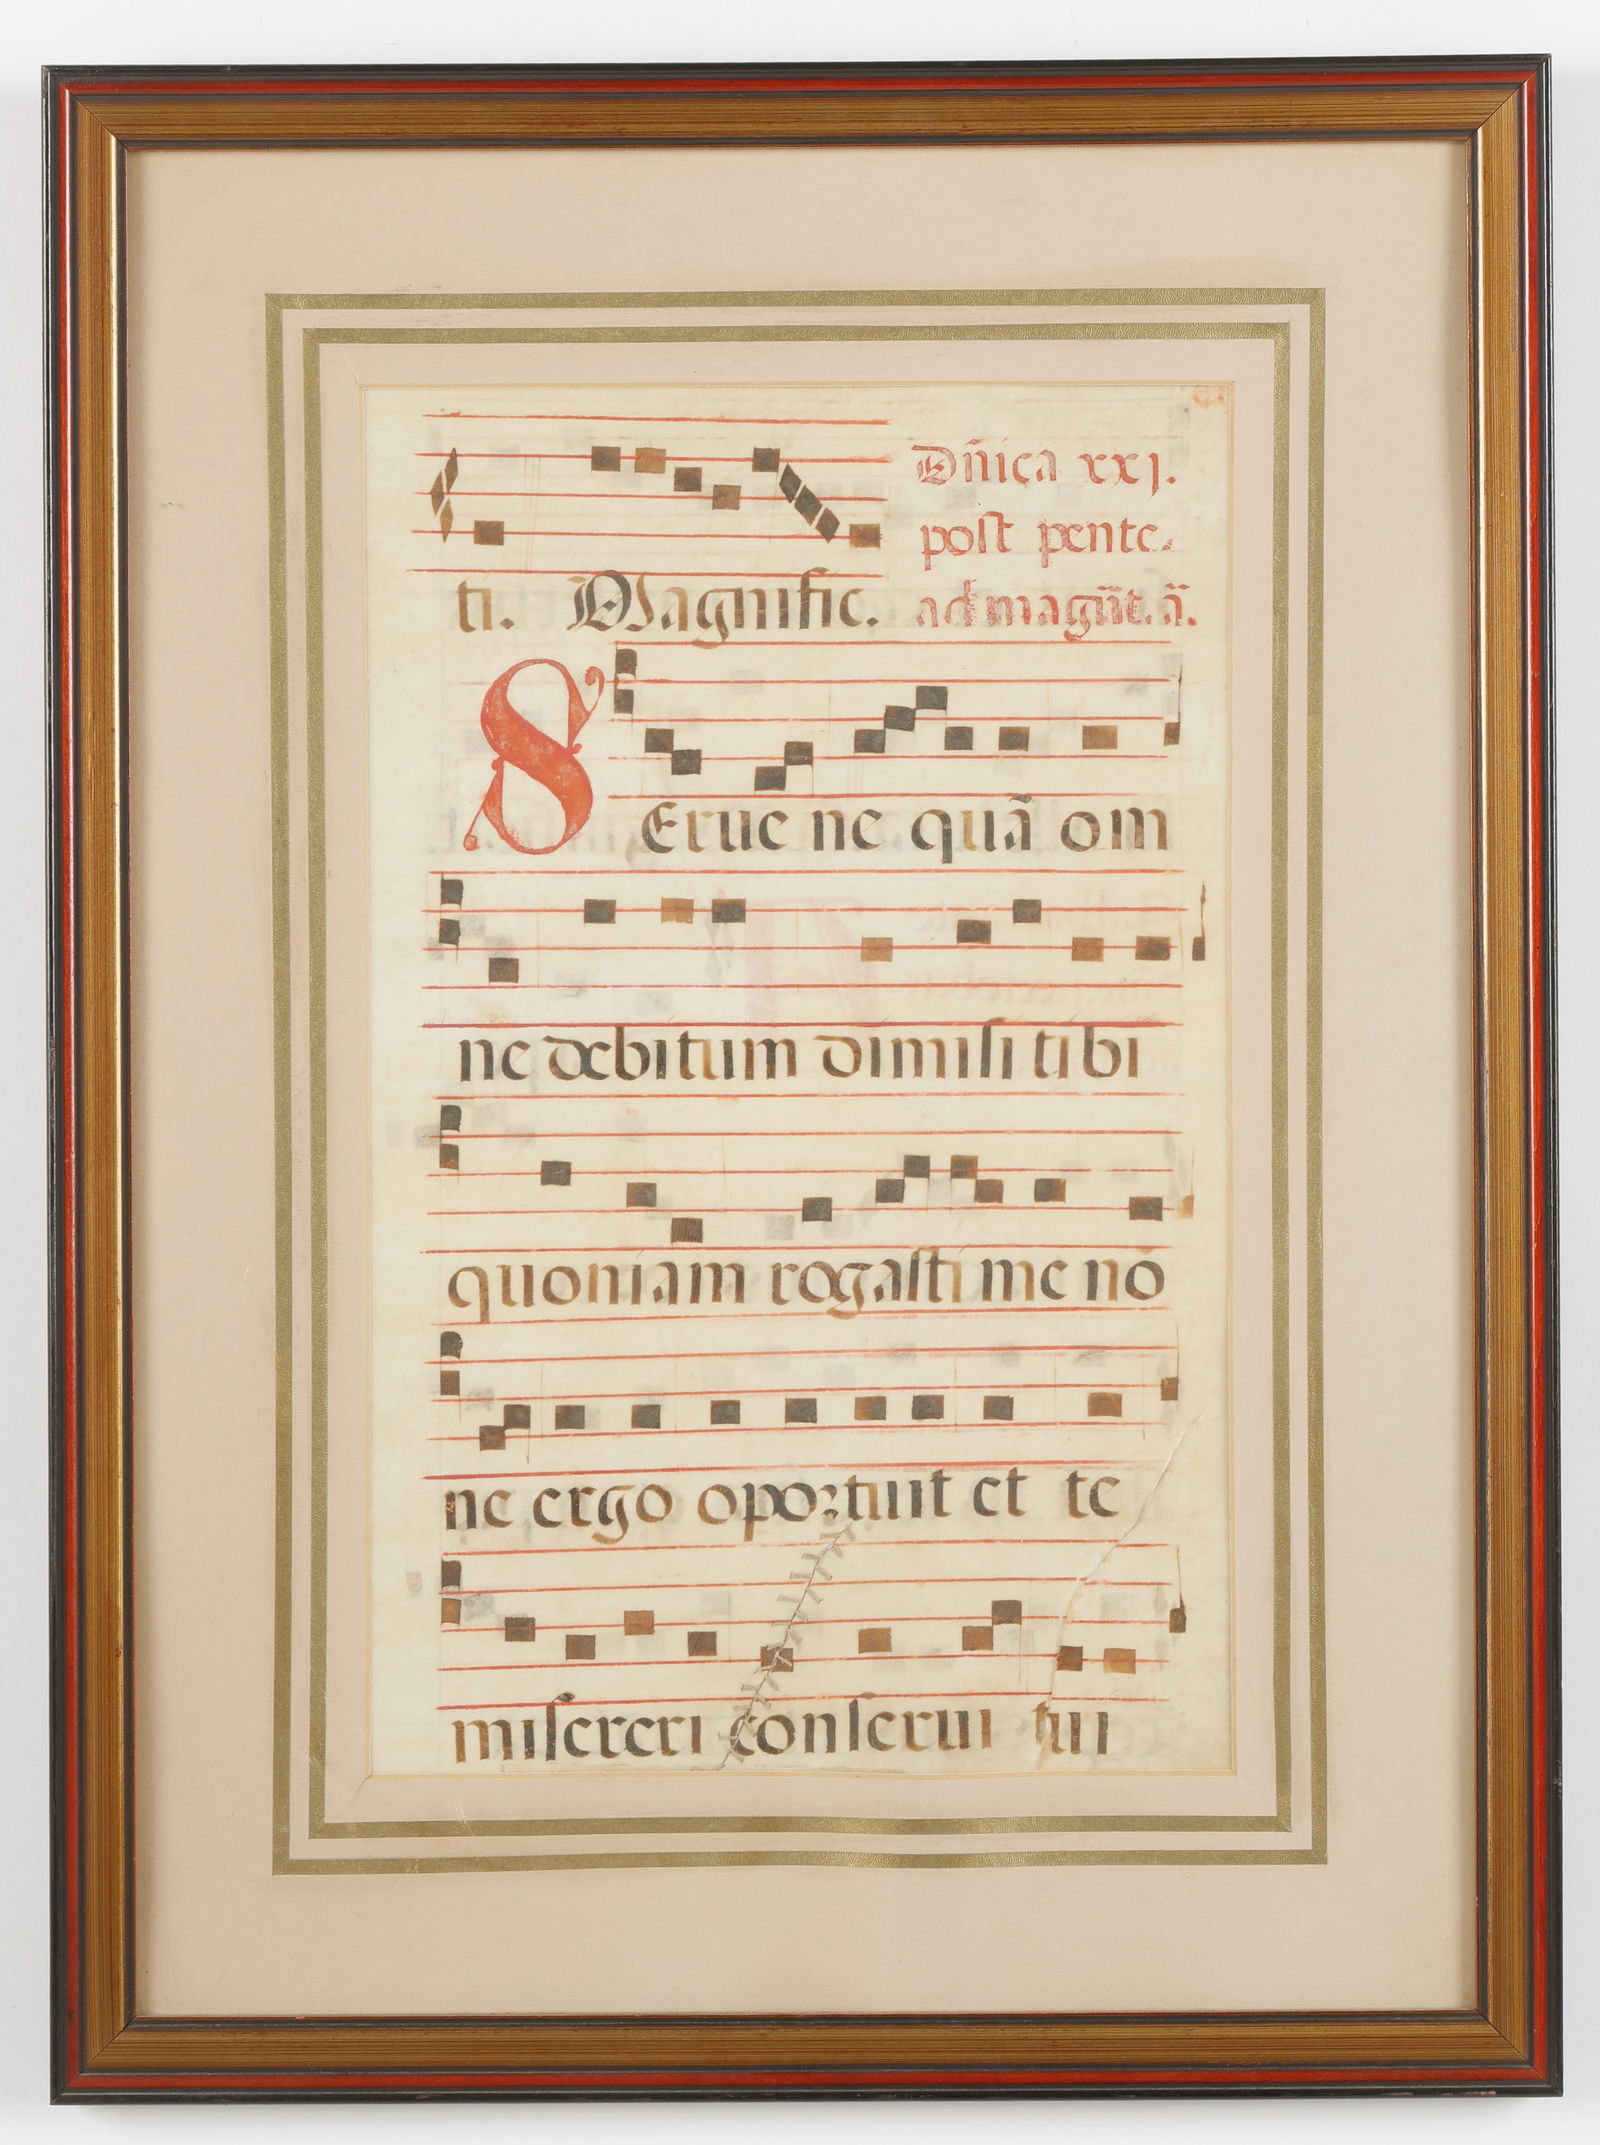 ti. Magnific.
Dñica xxj.
post pente.
ad magñt. ã.
SErue ne quã om
ne debitum dimisi tibi
quoniam rogasti me nõ
ne ergo oportuit et te
misereri conserui tui